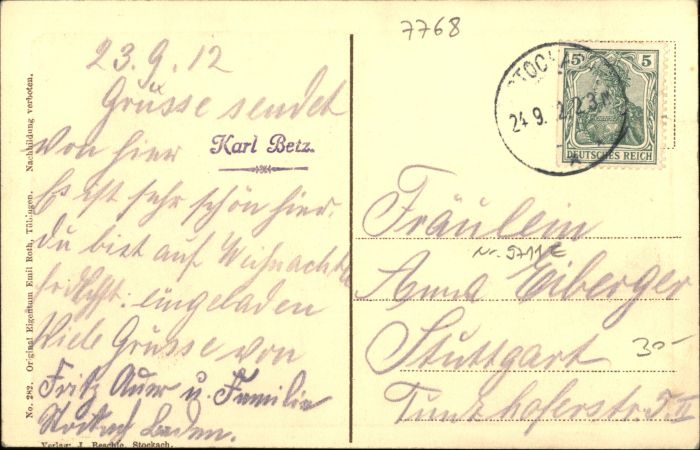 7768
23.9.12
Grüsse sendet
von hier Karl Betz.
Es ist sehr schön hier.
Du bist auf Weihnachten
eingeladen
Viele Grüsse von
Fritz Auer u. Familie
Stockach Baden.
5 5
DEUTSCHES REICH
24.9.12 2-3N
Fräulein
Nr. 5711E
Anna Eiberger
Stuttgart
30-
Tunzhoferstr. 5.II
No. 282. Original Eigentum Emil Roth, Tübingen. Nachbildung verboten.
Verlag: J. Beschle, Stockach.